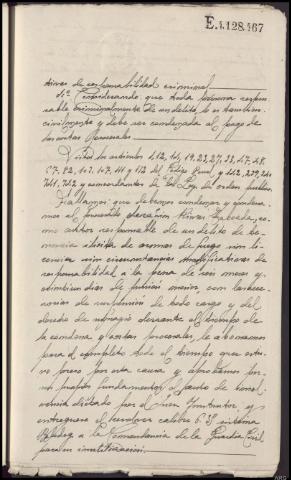 E.1.128.467
tivas de responsabilidad criminal
4º Considerando, que toda persona respon-
sable criminalmente de un delito, lo es tambien
civilmente y debe ser condenada al pago de
las costas procesales
Vistos los articulos 1, 12, 14, 19, 23, 27, 33, 47,
y 112 del Codigo Penal y 142, 239,
741, 742, y concordantes de la Ley de orden publico.
Fallamos: que debemos condenar y condena-
mos al procesado
mo autor responsable de un delito de te-
nencia ilicita de armas de fuego sin li-
cencia sin circunstancias modificativas de
responsabilidad a la pena de seis meses y
dias de prision menor con las acce-
sorias de suspension de todo cargo y del
derecho de sufragio durante el tiempo de
la condena y costas procesales, le abonamos
para el cumplimiento todo el tiempo que estu-
vo preso por esta causa y aprobamos por
sus propios fundamentos el auto de insol-
vencia dictado por el Juez Instructor, y
entreguese el revolver calibre 6.35 sistema
a la Comandancia de la Guardia Civil
para su inutilizacion.